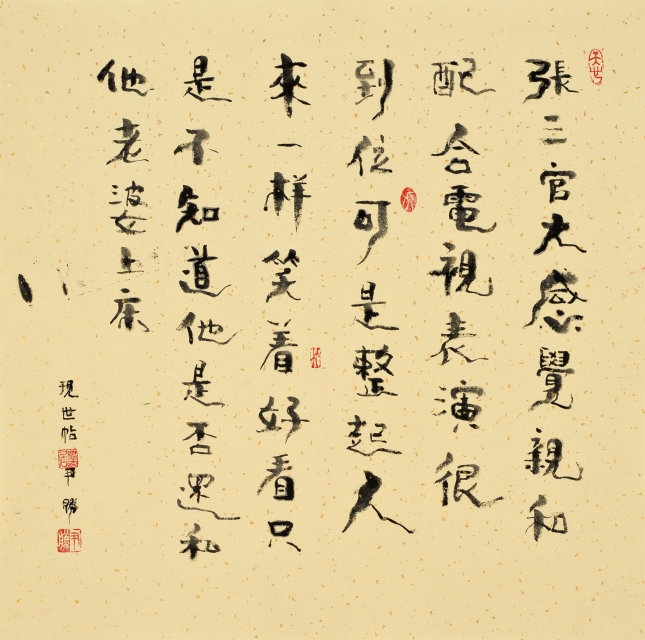 張三官大感覺親和
配合電視表演很
到位可是整起人
來一样笑着好看只
是不知道他是否還和
他老婆上床
現世帖
尹勝